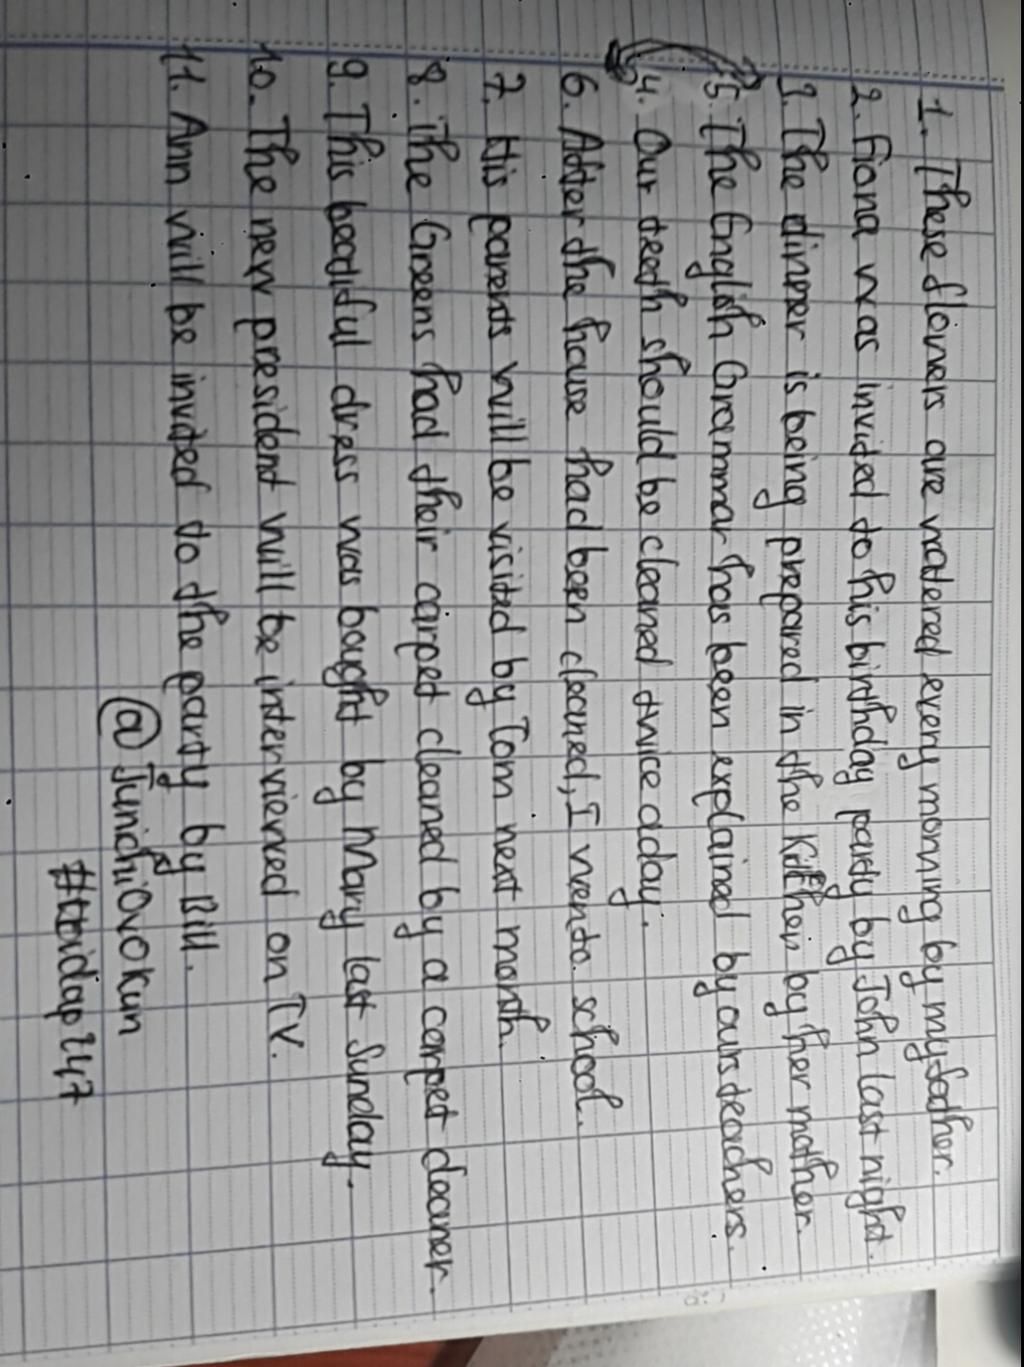 1. These flowers are watered every morning by my father.
2. Fiona was invited to his birthday party by John last night.
3. The dinner is being prepared in the kitchen by her mother.
5. The English Grammar has been explained by ours teachers.
4. Our teeth should be cleaned twice a day.
6. After the house had been cleaned, I went to school.
7. His parents will be visited by Tom next month.
8. The Greens had their carpet cleaned by a carpet cleaner.
9. This beatiful dress was bought by Mary last Sunday.
10. The new president will be interviewed on TV.
11. Ann will be invited to the party by Bill.
@JunichiOvOKun
#tbidap247